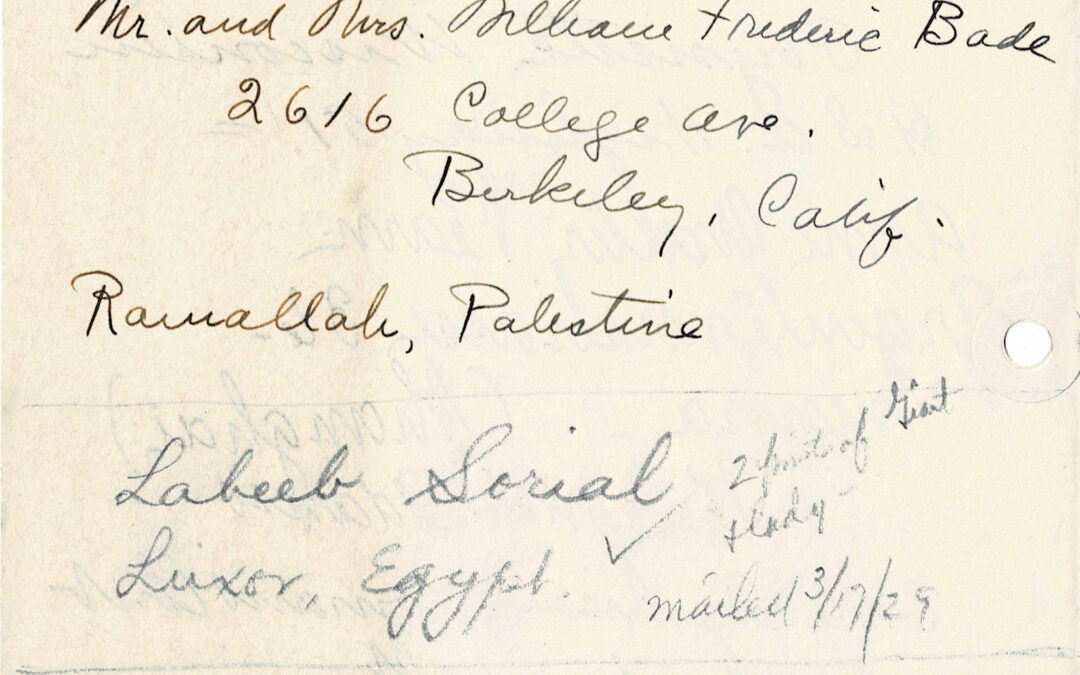 Mr. and Mrs. William Frederic Bade
2616 College Ave.
Berkeley, Calif.
Ramallah, Palestine
Labeeb Sorial
Luxor, Egypt.
2 of
mailed 3/17/29